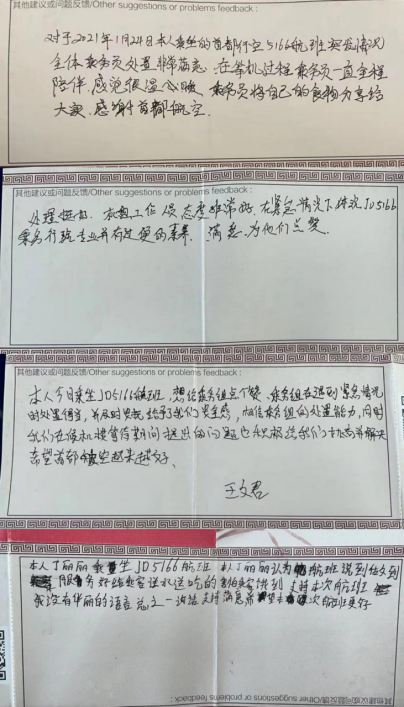 其他建议或问题反馈/Other suggestions or problems feedback:
对于2021年1月24日本人乘坐的首都航空5166航班突发情况
全体乘务员处置非常满意. 在等机过程乘务员一直全程
陪伴. 感觉很温暖. 乘务员将自己的食物分享给
大家. 感谢首都航空.
其他建议或问题反馈/Other suggestions or problems feedback:
处理 工作人员态度非常好. 在紧急情况下 JD5166
乘务 专业并有过硬的素养. 满意. 为他们点赞.
其他建议或问题反馈/Other suggestions or problems feedback:
本人今日乘坐JD5166航班, 想给乘务组点个赞、乘务组在遇到紧急情况
时处置得当, 并及时 给了我们安全感, 相信乘务组的处置能力, 同时
我们在候机楼等待期间提出的问题也积极给我们 并解决
希望首都航空越来越好.
王文君
本人丁丽丽乘坐JD5166航班 本人丁丽丽认为 航班说到位文到
服务 好给乘客送水送吃的 支持本次航班
我没有华丽的语言总之一句话支持满意希望 次航班更好
其他建议或问题反馈/Other suggestions or problems feedback: